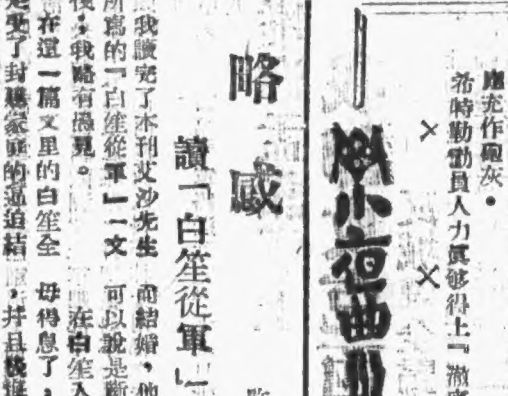 應充作砲灰。
希時勤動員人力眞够得上『澈
×
×
小夜曲
略感
讀「白笙從軍」
我讀完了本刊艾沙先生
所寫的「白笙從軍」一文
後，我略有意見。
在這一篇文里的白笙全
是受了封建家庭的逼迫結
而結婚，他
可以說是斷
在白笙入
毋得息了，
，并且